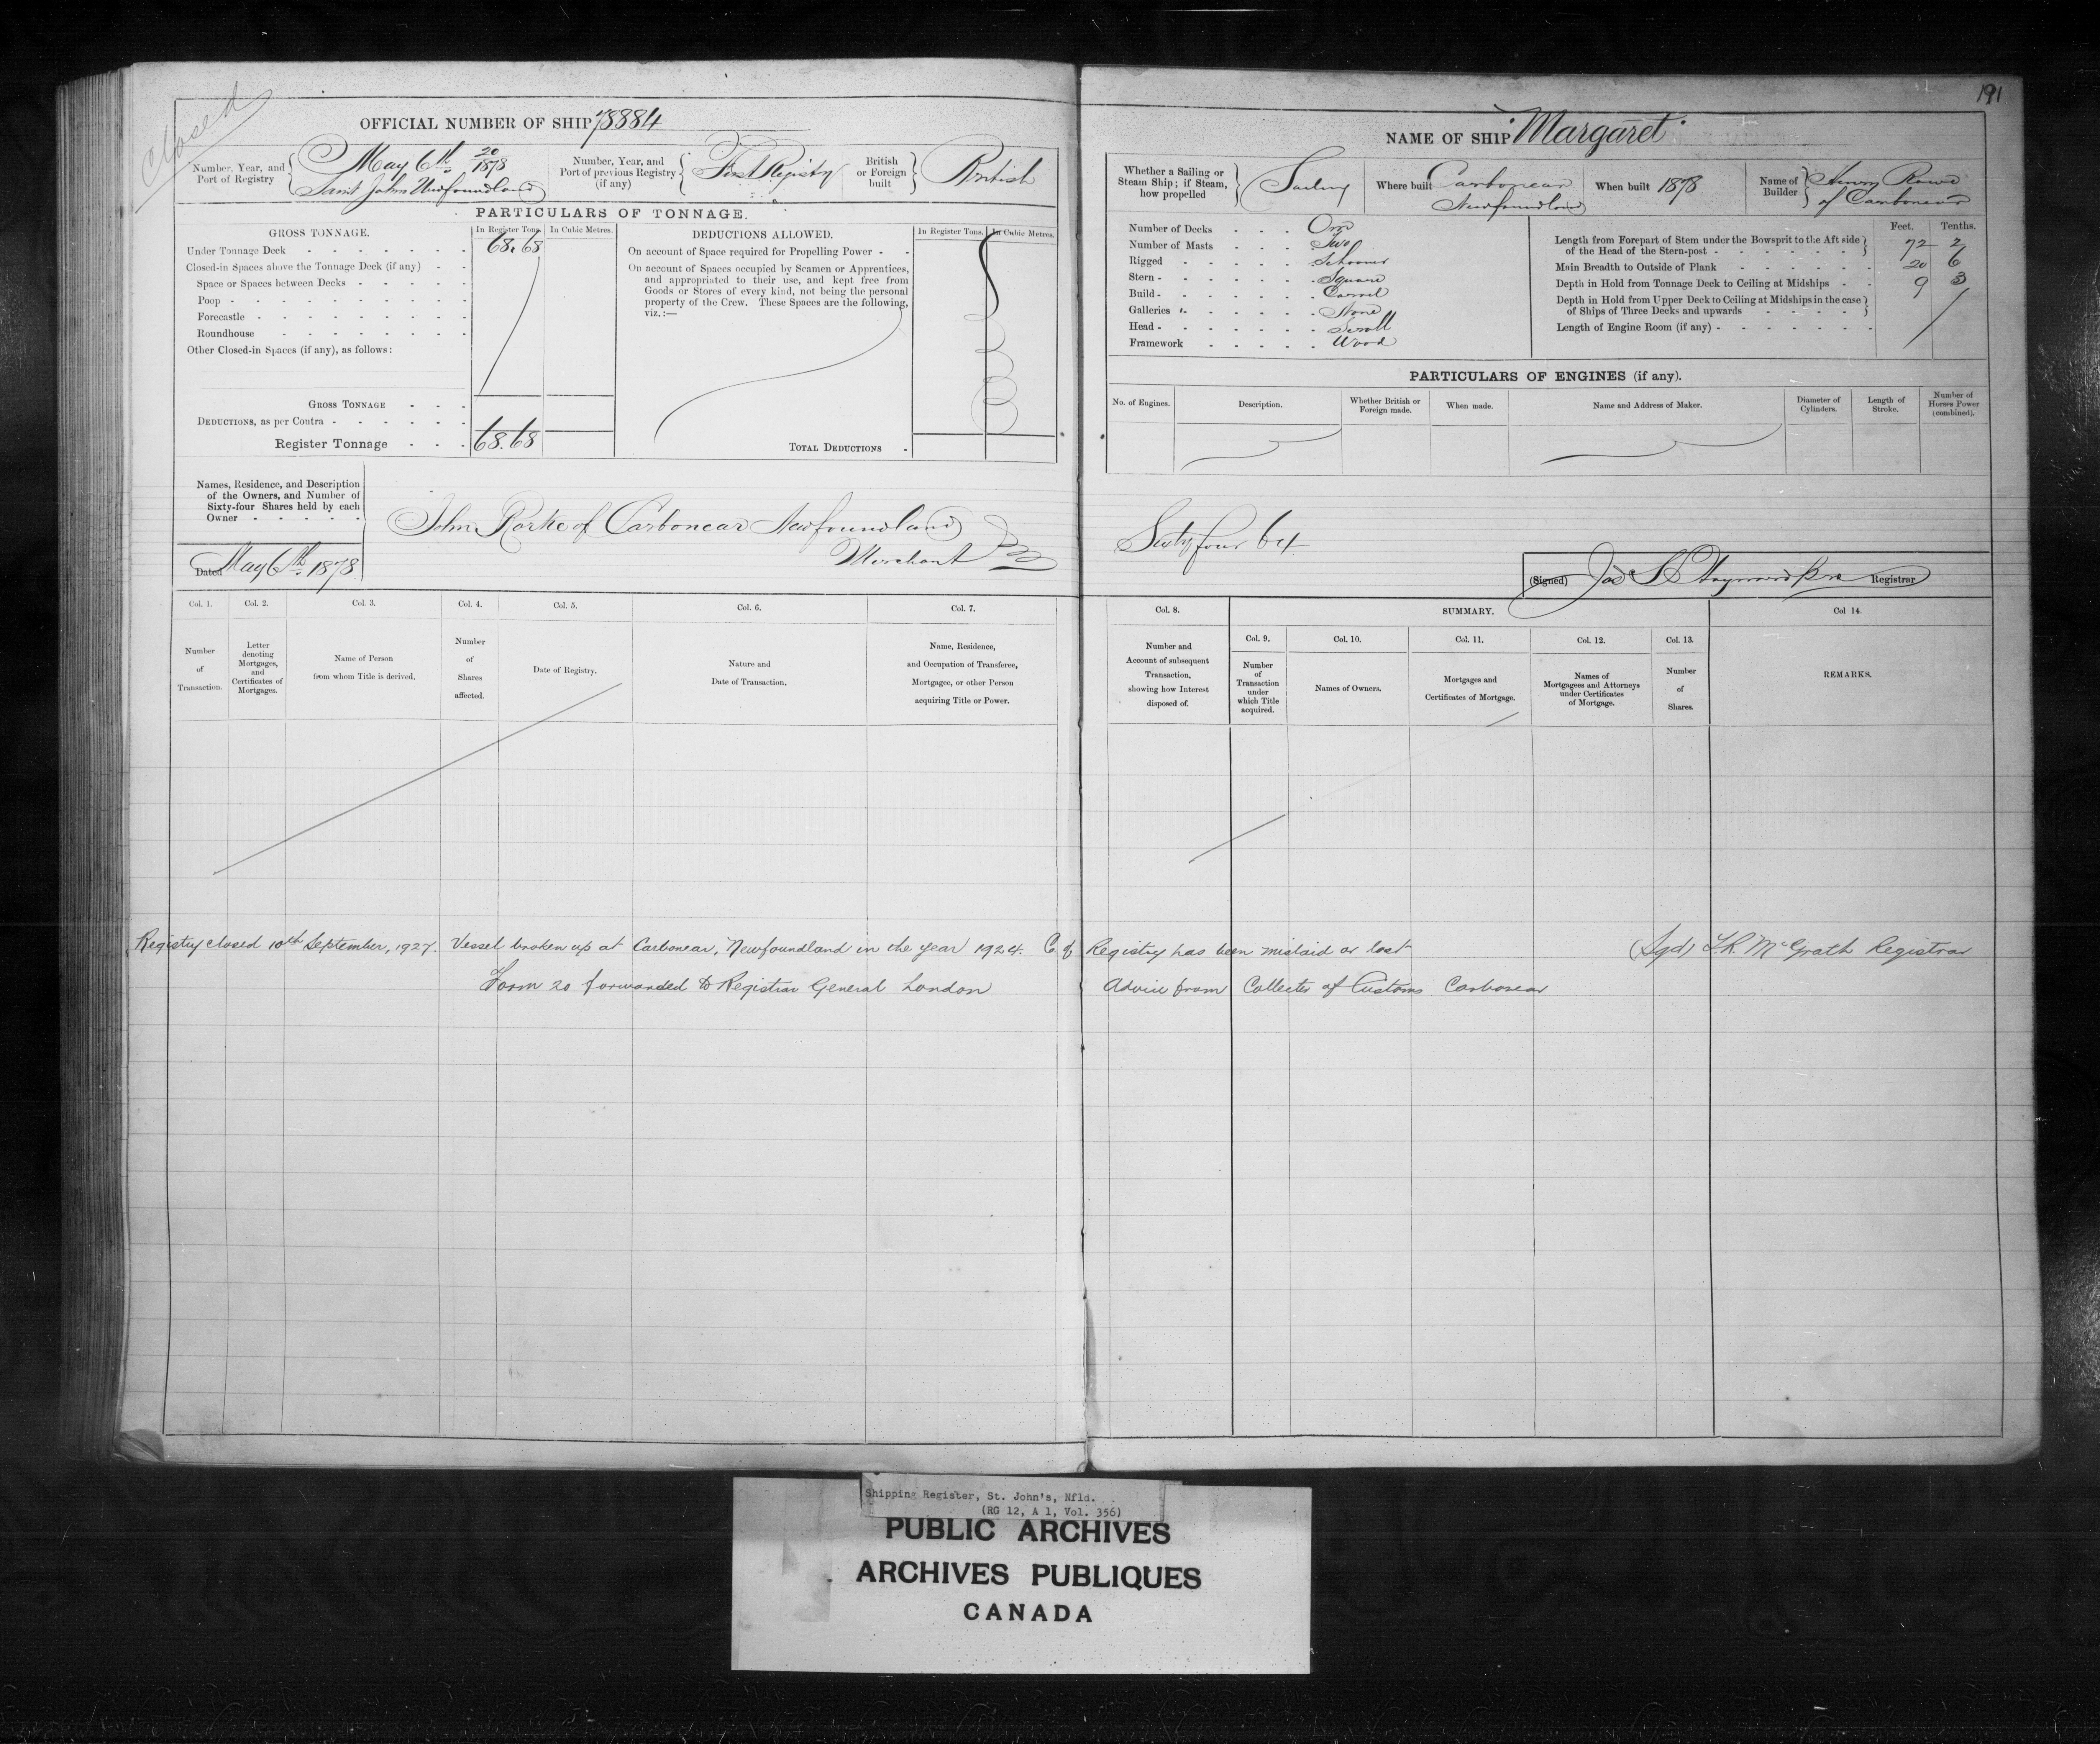 Closed
191
OFFICIAL NUMBER OF SHIP 78884
Number, Year, and Port of Registry { May 6th 20/1878 Saint Johns Newfoundland
Number, Year, and Port of previous Registry (if any) { First Registry
British or Foreign built } British
PARTICULARS OF TONNAGE.
GROSS TONNAGE. In Register Tons. In Cubic Metres.
Under Tonnage Deck 68.68
Closed-in Spaces above the Tonnage Deck (if any)
Space or Spaces between Decks
Poop
Forecastle
Roundhouse
Other Closed-in Spaces (if any), as follows:
GROSS TONNAGE
DEDUCTIONS, as per Contra
Register Tonnage 68.68
DEDUCTIONS ALLOWED. In Register Tons. In Cubic Metres.
On account of Space required for Propelling Power
On account of Spaces occupied by Seamen or Apprentices,
and appropriated to their use, and kept free from
Goods or Stores of every kind, not being the personal
property of the Crew. These Spaces are the following,
viz.:—
TOTAL DEDUCTIONS
Names, Residence, and Description
of the Owners, and Number of
Sixty-four Shares held by each
Owner
John Rorke of Carbonear Newfoundland
Merchant
Dated May 6th 1878
NAME OF SHIP "Margaret"
Whether a Sailing or Steam Ship; if Steam, how propelled } Sailing
Where built Carbonear Newfoundland
When built 1878
Name of Builder } Henry Rowe of Carbonear
Number of Decks One
Number of Masts Two
Rigged Schooner
Stern Square
Build Carvel
Galleries None
Head Scroll
Framework Wood
Feet. Tenths.
Length from Forepart of Stem under the Bowsprit to the Aft side of the Head of the Stern-post 72 2
Main Breadth to Outside of Plank 20 6
Depth in Hold from Tonnage Deck to Ceiling at Midships 9 3
Depth in Hold from Upper Deck to Ceiling at Midships in the case of Ships of Three Decks and upwards
Length of Engine Room (if any)
PARTICULARS OF ENGINES (if any).
No. of Engines. Description. Whether British or Foreign made. When made. Name and Address of Maker. Diameter of Cylinders. Length of Stroke. Number of Horses Power (combined).
Sixty four 64
(Signed) Registrar
Col. 1. Col. 2. Col. 3. Col. 4. Col. 5. Col. 6. Col. 7.
Number of Transaction.
Letter denoting Mortgages, and Certificates of Mortgages.
Name of Person from whom Title is derived.
Number of Shares affected.
Date of Registry.
Nature and Date of Transaction.
Name, Residence, and Occupation of Transferee, Mortgagee, or other Person acquiring Title or Power.
Col. 8. SUMMARY. Col 14.
Col. 9. Col. 10. Col. 11. Col. 12. Col. 13.
Number and Account of subsequent Transaction, showing how Interest disposed of.
Number of Transaction under which Title acquired.
Names of Owners.
Mortgages and Certificates of Mortgage.
Names of Mortgagees and Attorneys under Certificates of Mortgage.
Number of Shares.
REMARKS.
Registry closed 10th September, 1927. Vessel broken up at Carbonear, Newfoundland in the year 1924. C of Registry has been mislaid or lost (Sgd) McGrath Registrar
Form 20 forwarded to Registrar General London Advice from Collector of Customs Carbonear
Shipping Register, St. John's, Nfld.
(RG 12, A 1, Vol. 356)
PUBLIC ARCHIVES
ARCHIVES PUBLIQUES
CANADA